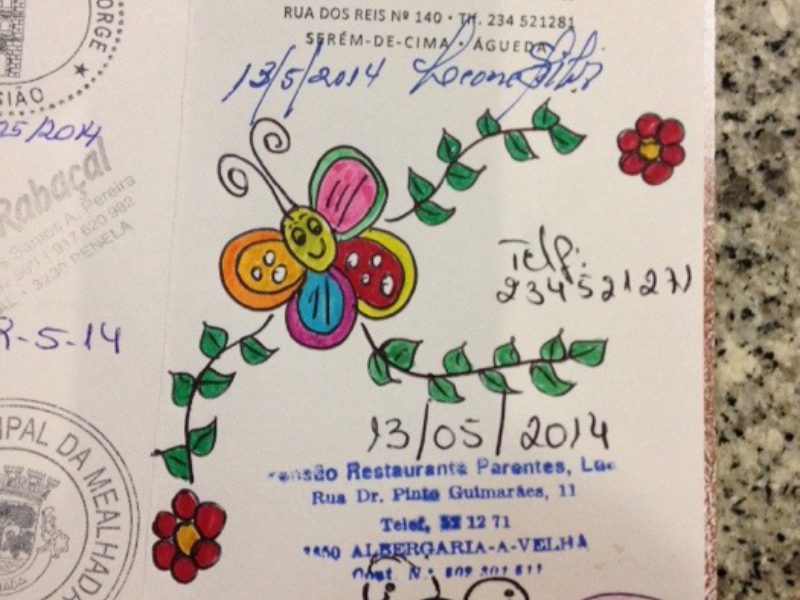 JORGE
SIÃO
05/2014
Rabaçal
Santos A. Pereira
917 620 982
3230 PENELA
2-5-14
IPAL DA MEALHADA
RUA DOS REIS Nº 140 • TH. 234 521281
SERÉM-DE-CIMA • ÁGUEDA
13/5/2014
Telf:
234 521271
13/05/2014
Restaurante Parentes, L
Rua Dr. Pinto Guimarães, 11
Telef. 12 71
3850 ALBERGARIA-A-VELHA
Cont. N.º